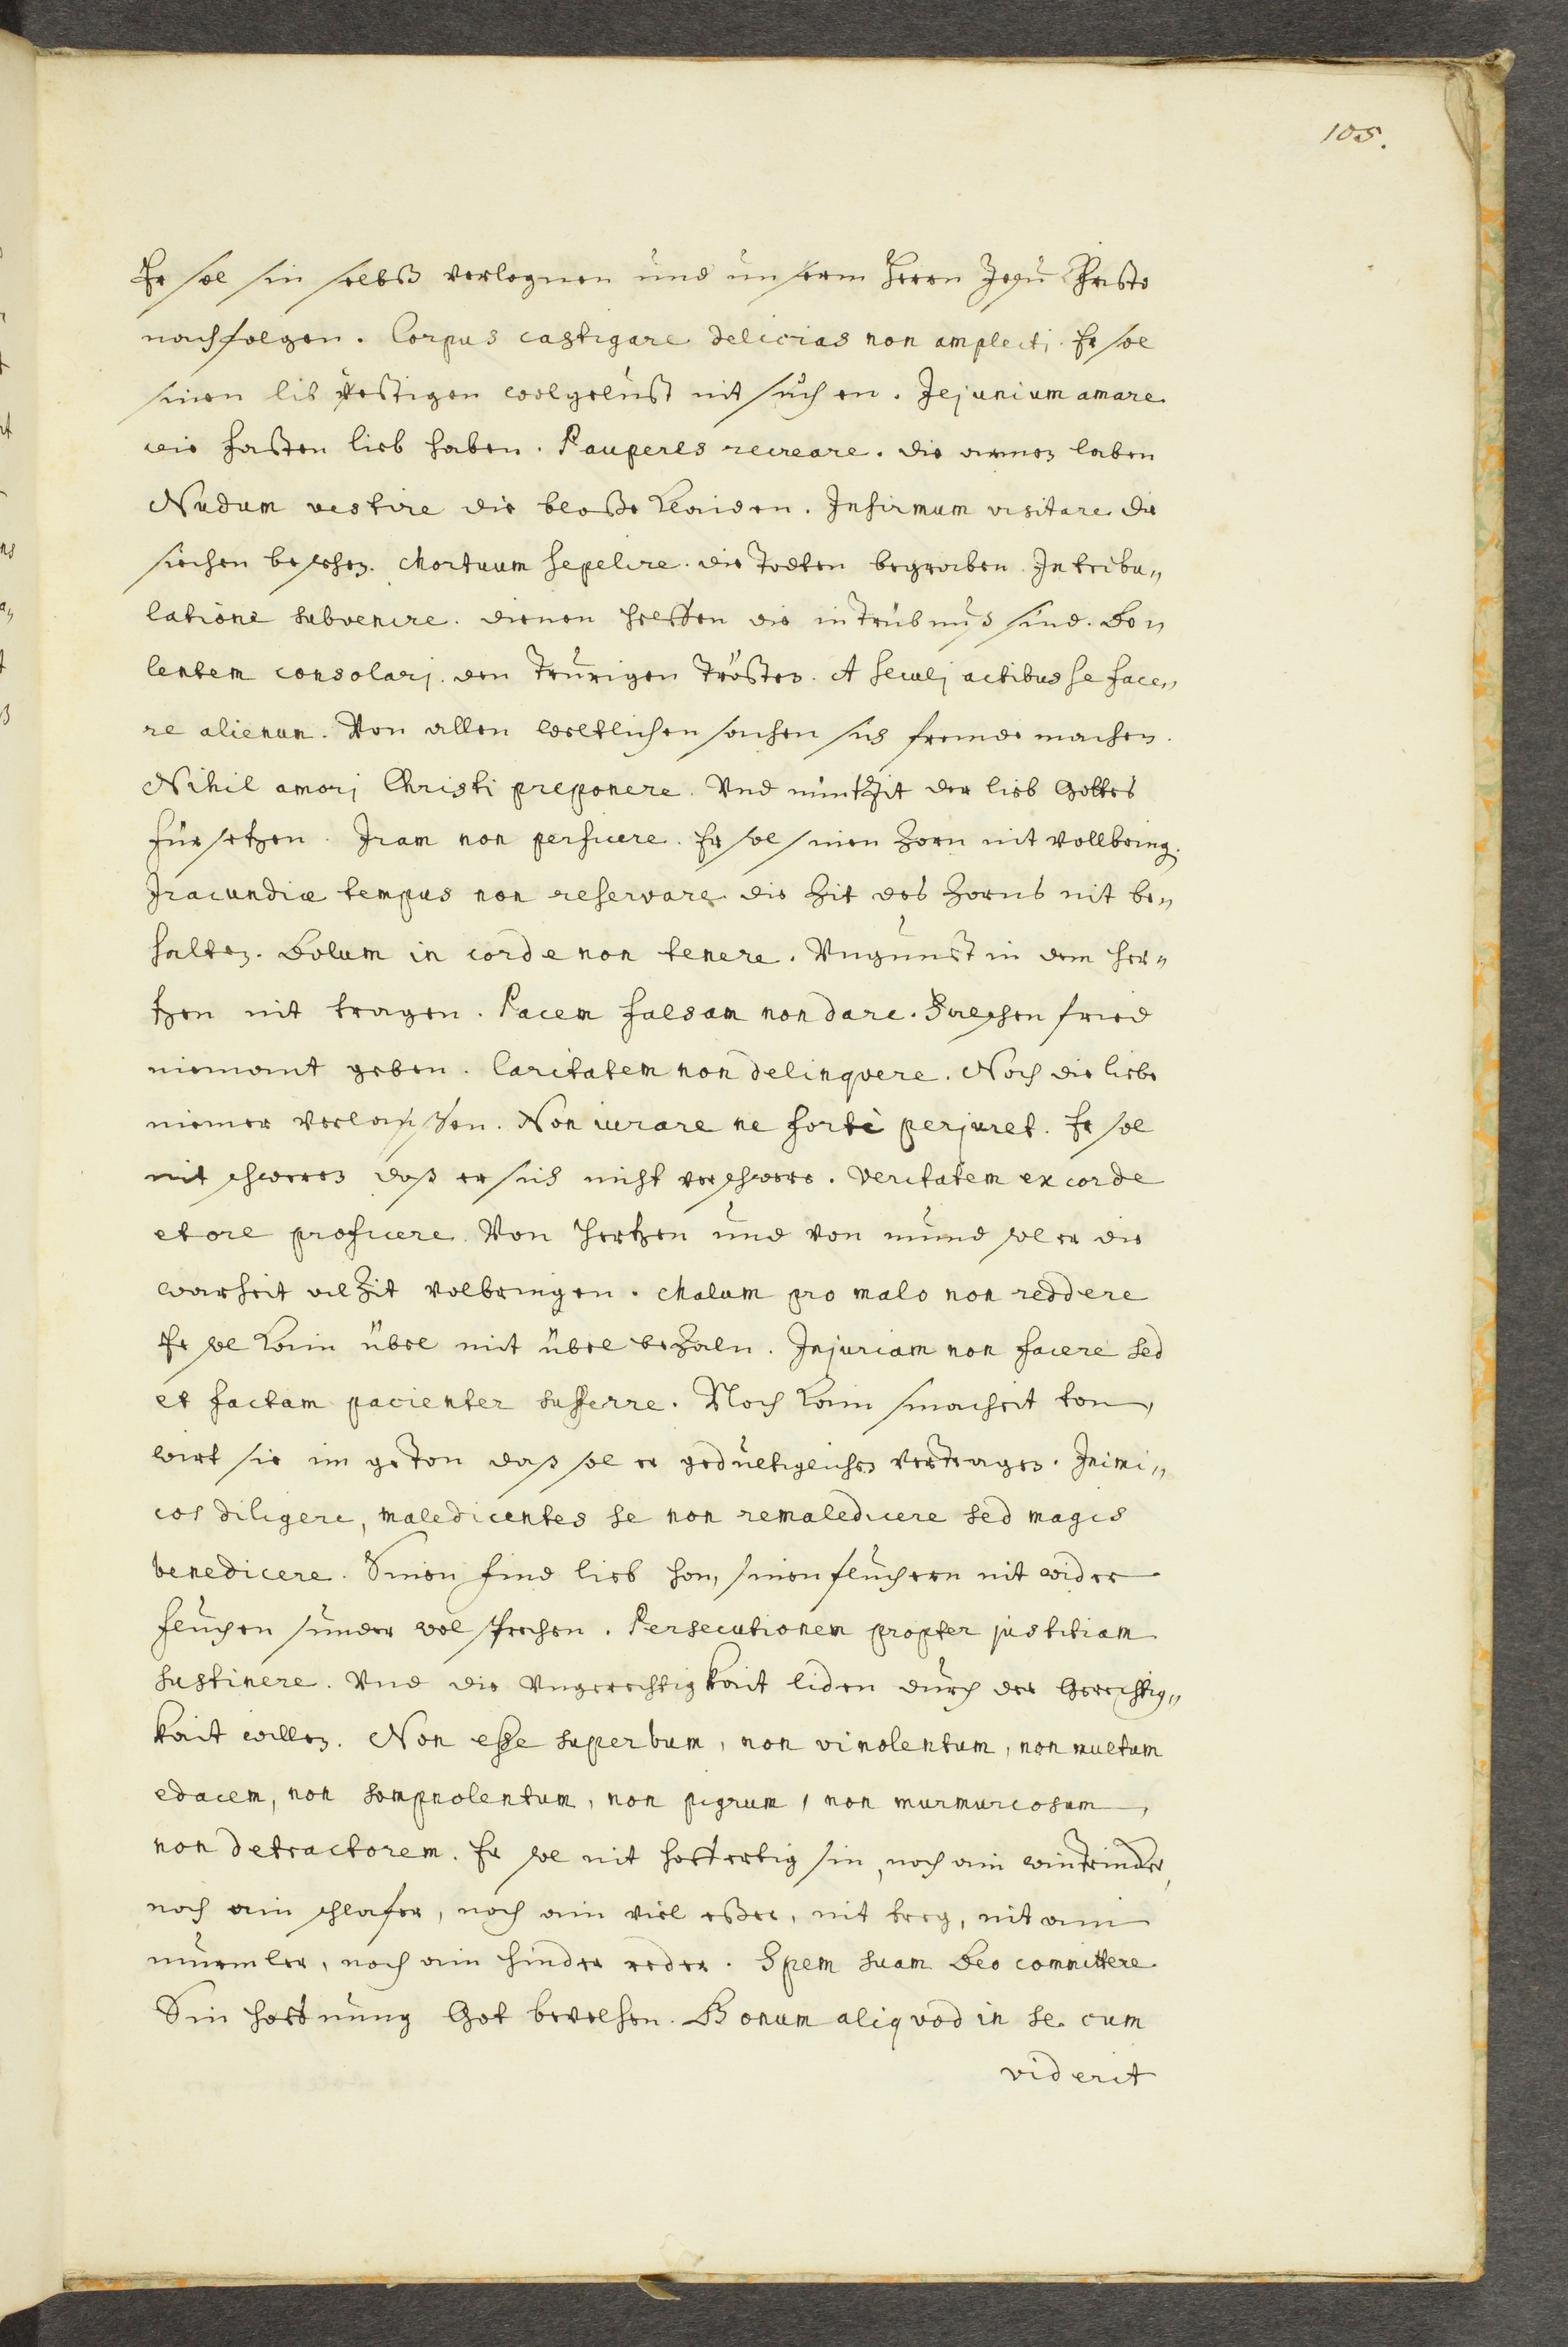 105.
Er sol sin selbß verlognen und unserm Herrn Jesu Christo
nachfolgen. Corpus castigare delicias non amplecti. Er sol
sinen lib kestigen wolgelust nit suchen. Jejunium amare
wie fasten lieb haben. Pauperes recreare. die armen laben
Nudum vestire die bloße klaiden. Infirmum visitare die
siechen besehen. Mortuum sepelire. die Todten begraben. In tribu„
latione subvenire. dienen helffen die in trübnuß sind. Do„
lentem consolarj. den Trurigen trösten. A seculj actibus se face„
re alienum. Von allen weltlichen sachen sich fremde machen.
Nihil amorj Christi preponere. Und nüntzit der lieb Gottes
fürsetzen. Iram non perficere. Er sol sinen Zorn nit vollbring.
Iracundiæ tempus non reservare die Zit des Zorns nit be„
halten. Dolum in corde non tenere. Ungunst in dem her„
tzen nit tragen. Pacem falsam non dare. Falschen fried
niemant geben. Caritatem non delinqvere. Noch die liebe
niemer verlassen. Non iurare ne forte perjuret. Er sol
nit schweren daß er sich nicht verschwere. Veritatem ex corde
et ore proficere. Von hertzen und von mund sol er die
warheit alzit volbringen. Malum pro malo non reddere
Er sol kain übel mit übel bezaln. Injuriam non facere sed
et factam pacienter sufferre. Noch kain smacheit ton,
wirt sie im geton daß sol er gedultiglichen vertragen. Inimi„
cos diligere, maledicentes se non remaledicere sed magis
benedicere. Sinen find lieb han, sinen fluchern nit wider
fluchen sunder wol sprechen. Persecutionem propter justitiam
sustinere. Und die Ungerechtigkait liden durch der Gerechtig„
kait willen. Non esse superbum, non vinolentum, non multum
edacem, non sompnolentum, non pigrum, non murmurosum,
non detractorem. Er sol nit hoffertig sin, noch ain wintrinder,
noch ain schlafer, noch ain viel esser, nit treg, nit ain
murmler, noch ain hinder reder. Spem suam Deo committere
Sin hoffnung Got bevelhen. Bonum aliqvod in se cum
viderit